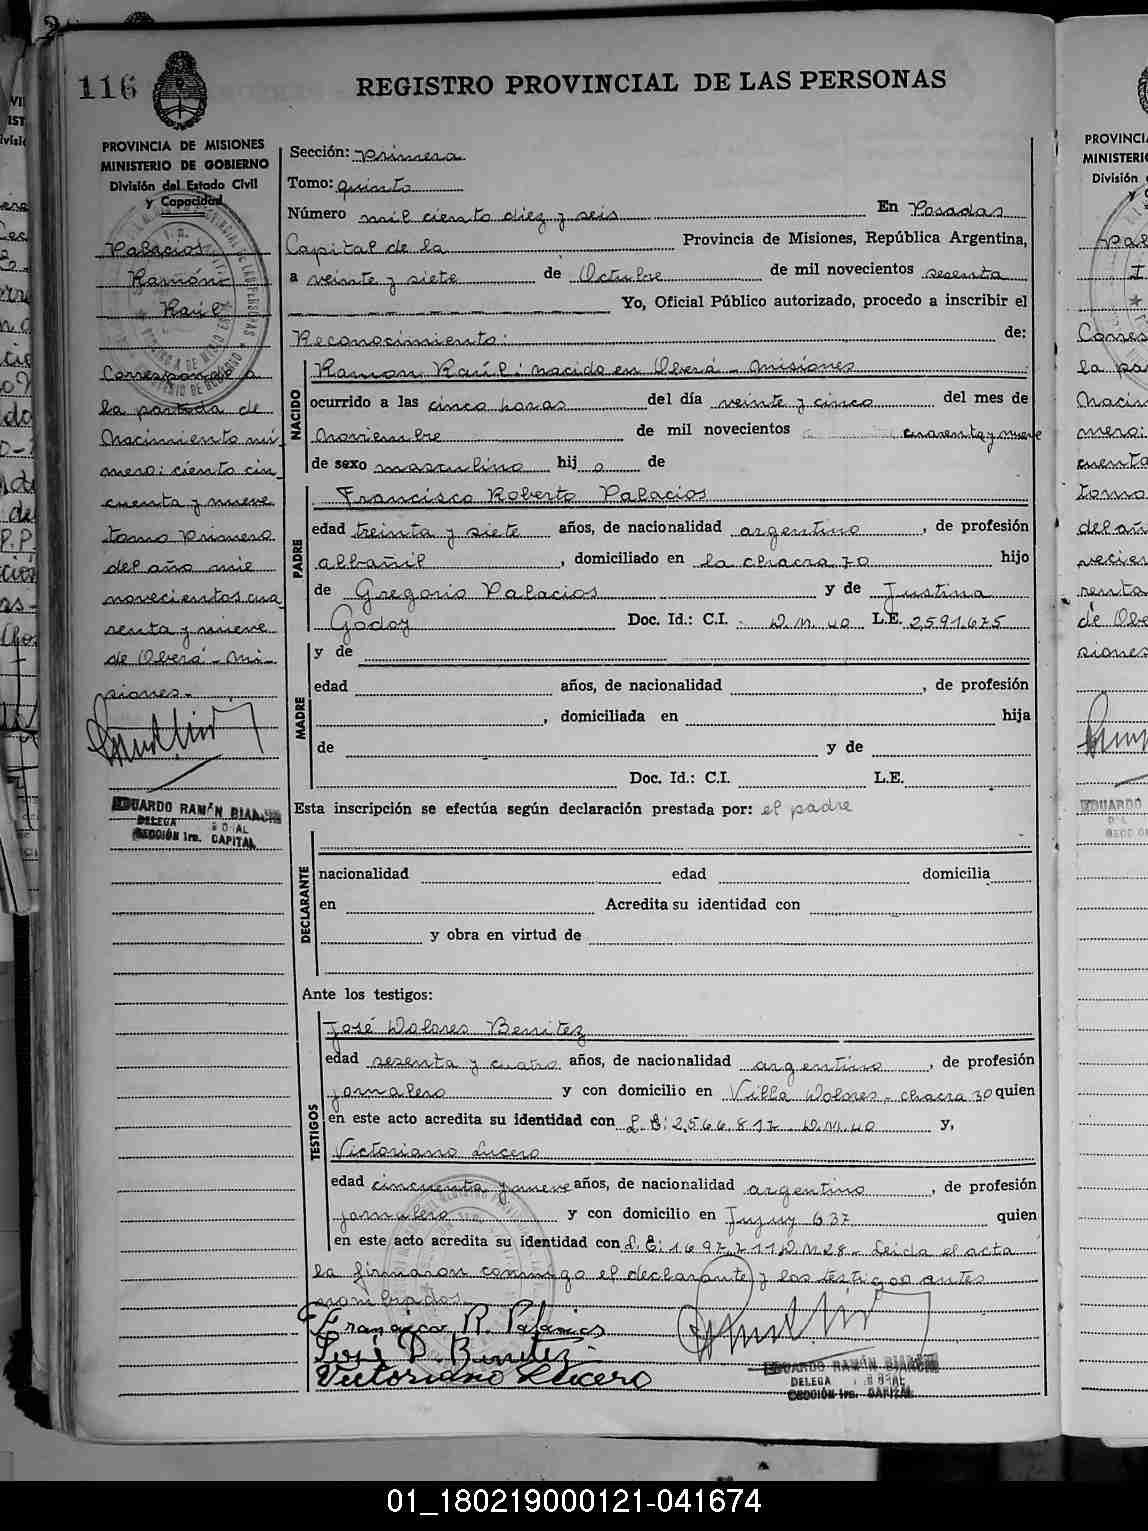 116
REGISTRO PROVINCIAL DE LAS PERSONAS
PROVINCIA DE MISIONES
MINISTERIO DE GOBIERNO
División del Estado Civil
y Capacidad
Palacios
Ramón
Raúl
Corresponde a
la partida de
Nacimiento nú
mero: ciento cin
cuenta y nueve
tomo Primero
del año mil
novecientos cua
renta y nueve
de Oberá - Mi-
siones.-
EDUARDO RAMÓN BIANCHI
DELEGA
SECCIÓN 1ra. CAPITAL
Sección: Primera
Tomo: quinto
Número mil ciento diez y seis En Posadas
Capital de la Provincia de Misiones, República Argentina,
a veinte y siete de Octubre de mil novecientos sesenta
Yo, Oficial Público autorizado, procedo a inscribir el
Reconocimiento: de:
NACIDO
Ramon Raúl: nacido en Oberá - Misiones
ocurrido a las cinco horas del día veinte y cinco del mes de
Noviembre de mil novecientos cuarenta y nueve
de sexo masculino hij o de
PADRE
Francisco Roberto Palacios
edad treinta y siete años, de nacionalidad argentino, de profesión
albañil, domiciliado en la chacra 70 hijo
de Gregorio Palacios y de Justina
Godoy Doc. Id.: C.I. - D.M. 40 L.E. 2591.675
MADRE
y de
edad años, de nacionalidad, de profesión
, domiciliada en hija
de y de
Doc. Id.: C.I. L.E.
Esta inscripción se efectúa según declaración prestada por: el padre
DECLARANTE
nacionalidad edad domicilia
en Acredita su identidad con
y obra en virtud de
Ante los testigos:
TESTIGOS
José Dolores Benitez
edad sesenta y cuatro años, de nacionalidad argentino, de profesión
jornalero y con domicilio en Villa Dolores - chacra 30 quien
en este acto acredita su identidad con L.E: 2.566.817 - D.M. 40 y,
Victoriano Lucero
edad cincuenta y nueve años, de nacionalidad argentino, de profesión
jornalero y con domicilio en Jujuy 637 quien
en este acto acredita su identidad con L.E: 1697.211 D.M 28 - Leida el acta
la firmaron conmigo el declarante y los testigos antes
nombrados.
Francisco R. Palacios
José D. Benitez
Victoriano Lucero
EDUARDO RAMÓN BIANCHI
DELEGA
SECCIÓN 1ra. CAPITAL
01_180219000121-041674